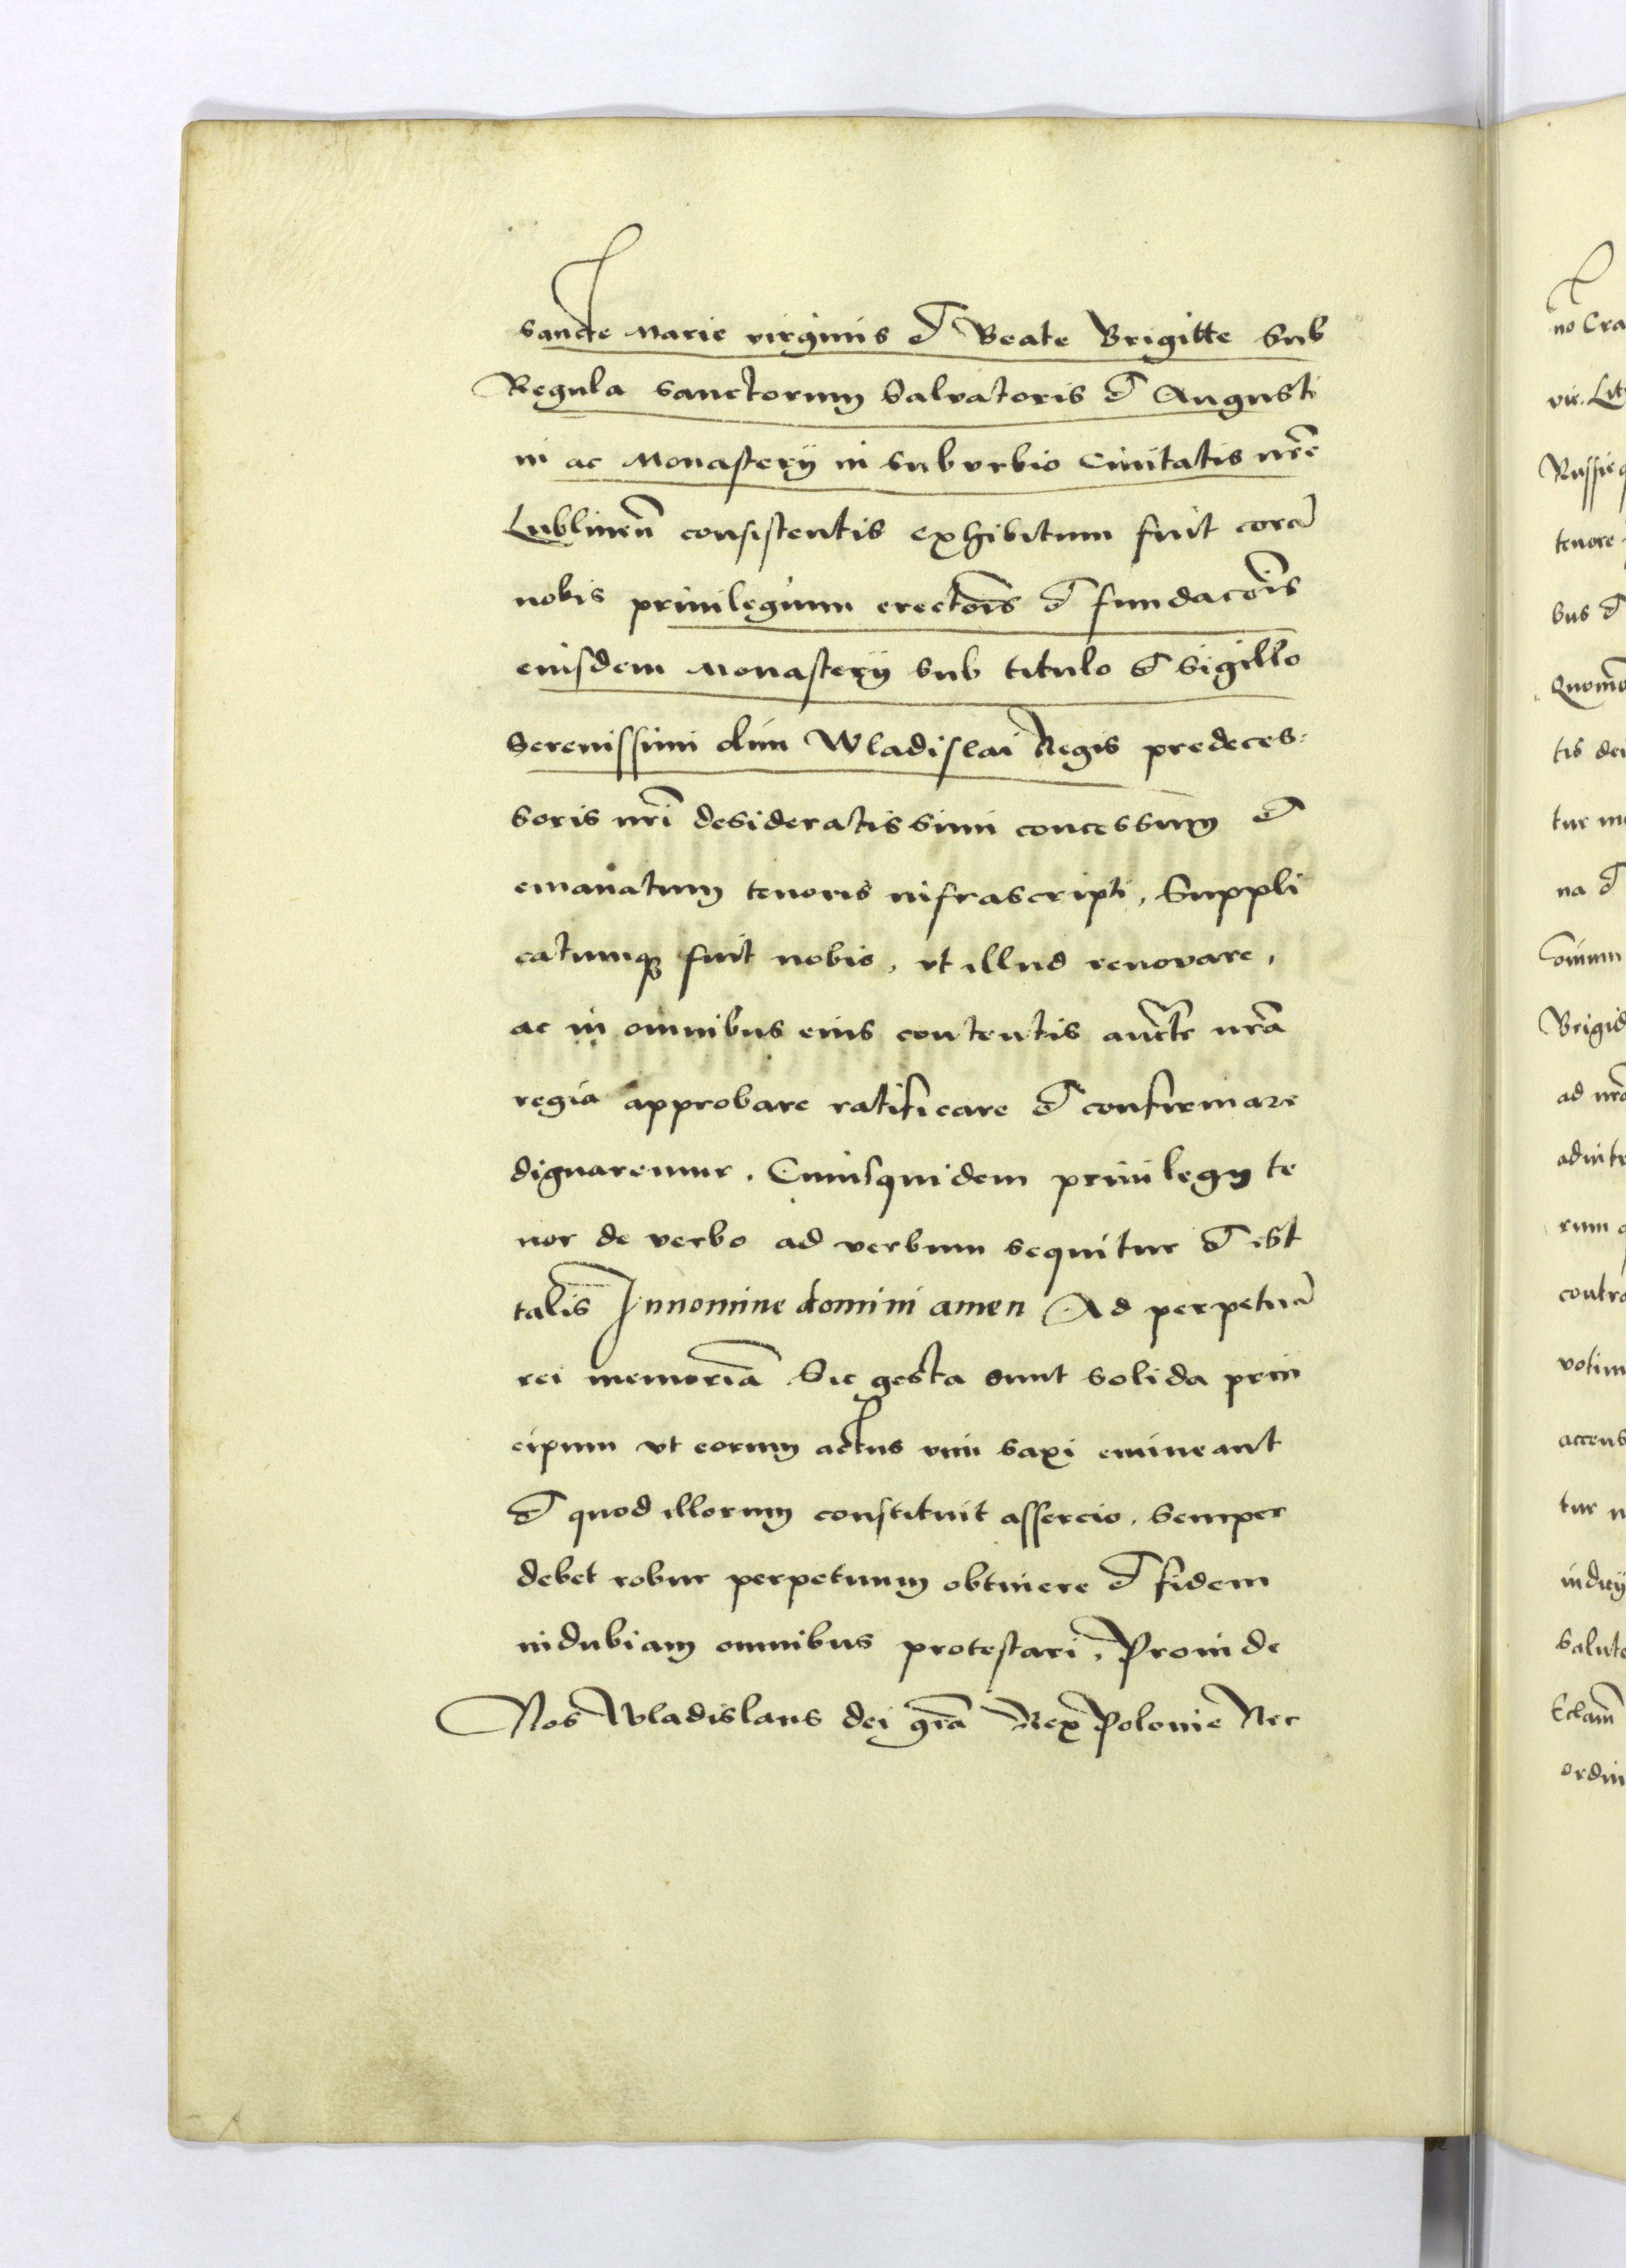 sancte Marie virginis et Beate Brigitte sub
Regula sanctorum Salvatoris et Augusti
ni ac Monasterij in suburbio Civitatis nr̃e
Lublineñ consistentis exhibitum fuit corã
nobis privilegium erectõis et fundacõis
eiusdem Monasterij sub titulo et sigillo
Serenissimi olim Wladislai Regis predeces:
soris nr̃i desideratissimi concessum et
emanatum tenoris infrascripti, Suppli
catumq̃ fuit nobis, ut illud renovare,
ac in omnibus eius contentis auct̃e nr̃a
regia approbare ratificare et confirmare
dignaremur. Cuiusquidem privilegij te
nor de verbo ad verbum sequitur et est
talis In nomine domini amen Ad perpetuã
rei memoriã Sic gesta sunt solida prin
cipum ut eorum actus vim saxi emineant
et quod illorum constituit assercio, semper
debet robur perpetuum obtinere et fidem
indubiam omnibus protestari, Proinde
Nos Wladislaus dei gr̃a Rex Polonie Nec
nõ Cra
vie. Lit
tenore
bus et
tis dei
na et
Brigid
rum
contra
accens
ordin